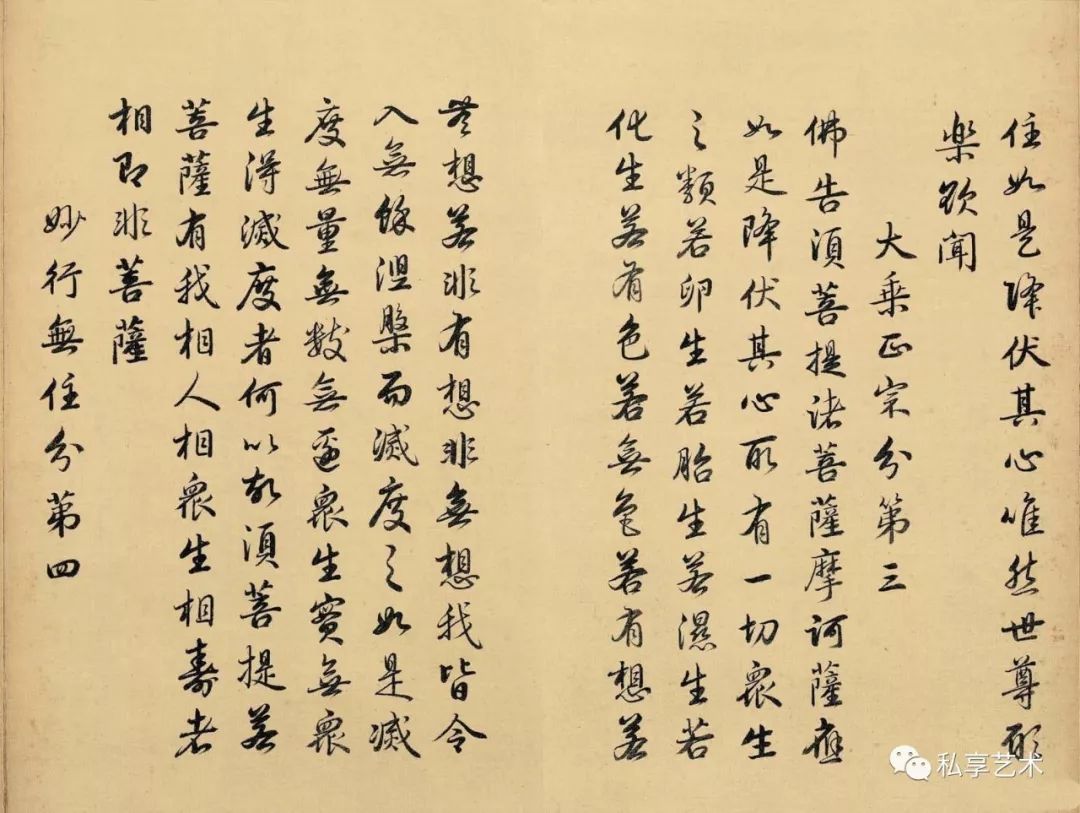 住如是降伏其心唯然世尊願
樂欲聞
大乘正宗分第三
佛告須菩提諸菩薩摩訶薩應
如是降伏其心所有一切衆生
之類若卵生若胎生若濕生若
化生若有色若無色若有想若
無想若非有想非無想我皆令
入無餘涅槃而滅度之如是滅
度無量無數無邊衆生實無衆
生得滅度者何以故須菩提若
菩薩有我相人相衆生相壽者
相即非菩薩
妙行無住分第四
私享艺术